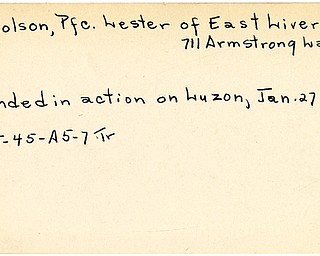 olson, Pfc. Lester of East Liver
711 Armstrong La
nded in action on Luzon, Jan. 27
-45-A5-7 Tr